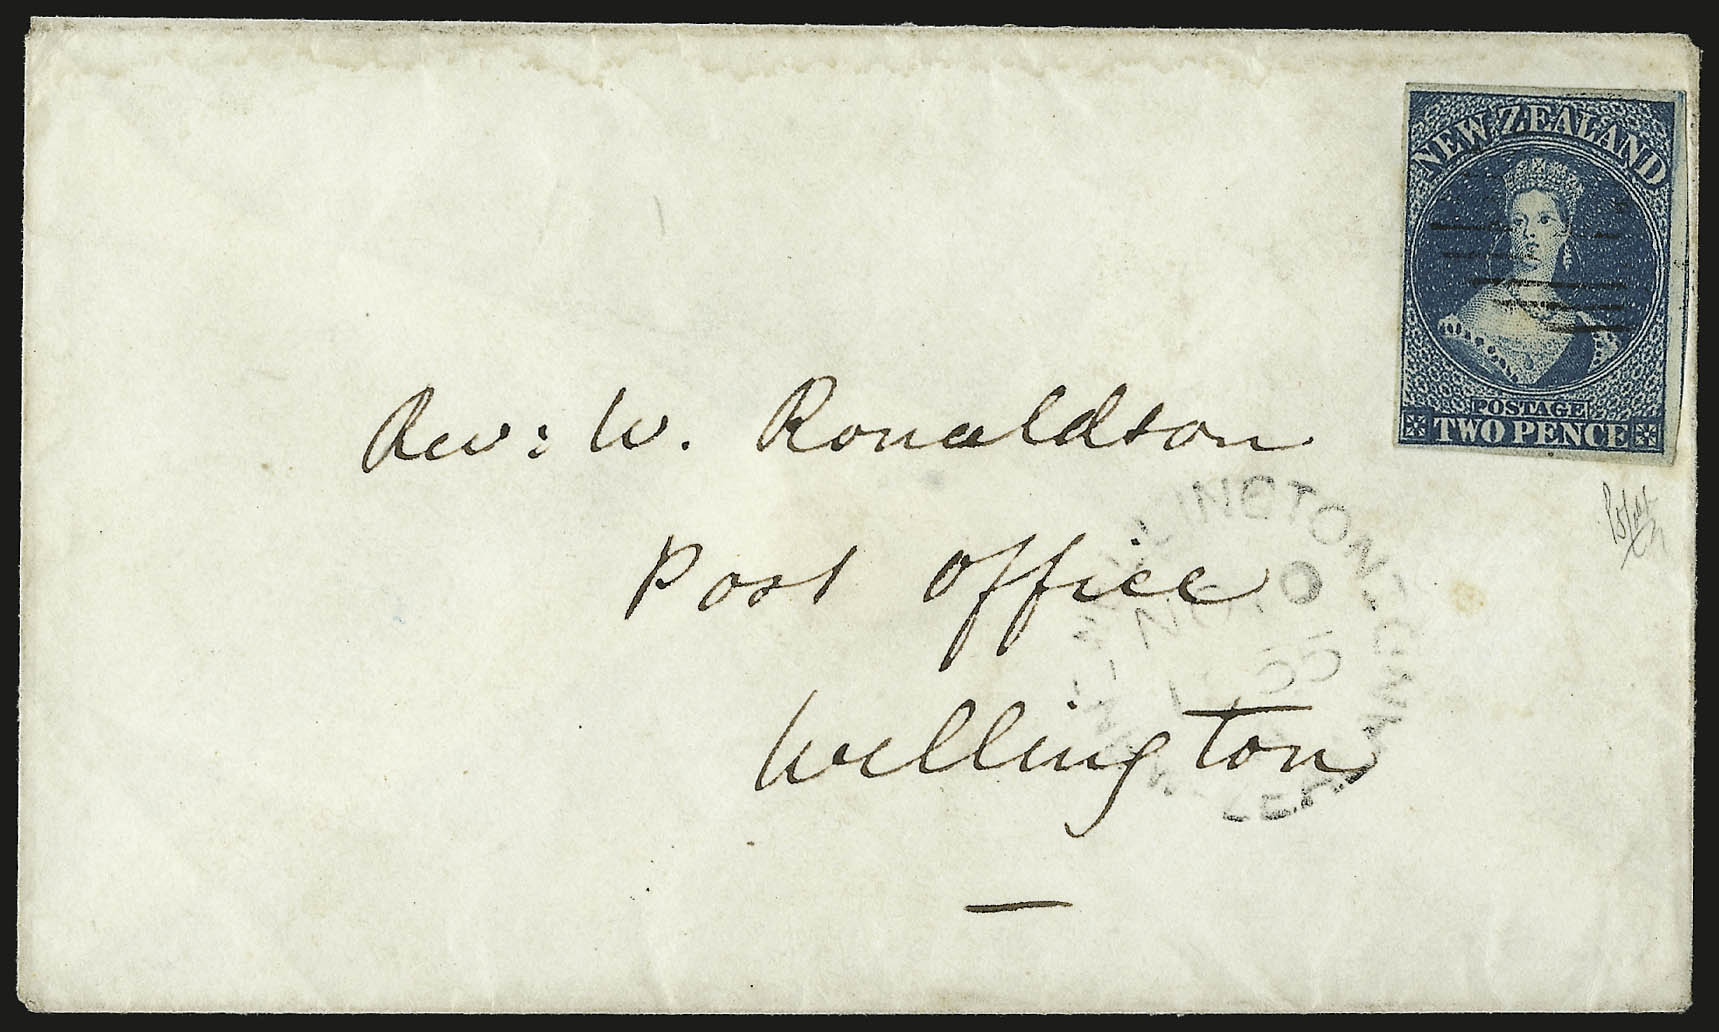 NEW ZEALAND
POSTAGE
TWO PENCE
Rev: W. Ronaldson
Post Office
Wellington
WELLINGTON
NO
NEW ZEALAND